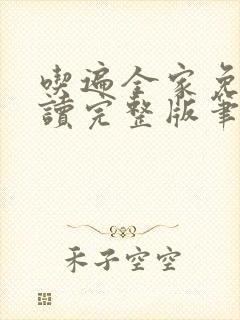 喫遍全家免
讀完整版筆
禾子空空